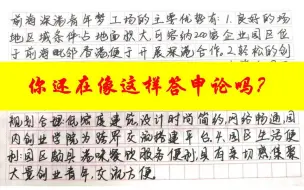 前海深港青年梦工场的主要优势有：1.良好的场
地区域条件占地面积大，可容纳200家企业，园区位于
前海毗邻香港，便于开展深港合作。2.轻松的创
你还在像这样答申论吗？
规划合理，低密度建筑，设计时尚简约，网络畅通，园
内创业学院为跨界交流搭建平台。4.园区生活便
利：园区助具港味餐饮服务便利，具有亲切感，集聚
大量创业青年，交流方便。